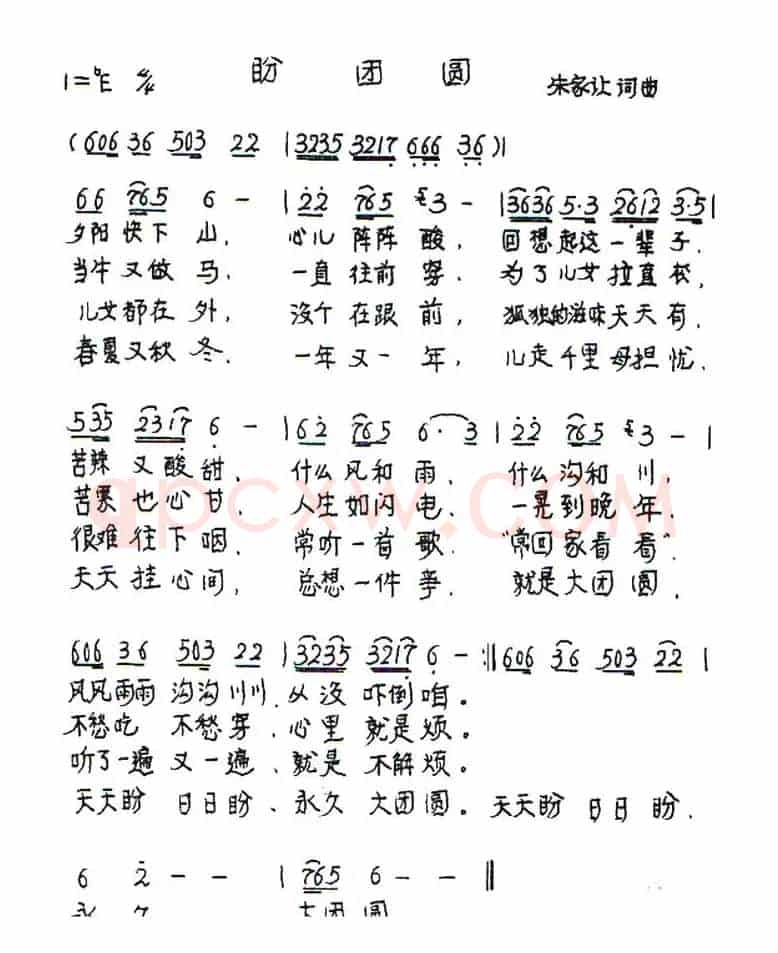 盼 团 圆
1=♭E 4/4
朱家让 词曲
(606 36 503 22 | 3235 3217 666 36) |
66 765 6 - | 22 765 3 - | 3636 5·3 2612 3·5 |
夕阳 快下 山, 心儿 阵阵 酸, 回想起这一辈子,
当牛又做马, 一直往前 为了儿女拉直
儿女都在外, 没个在跟前, 孤独的滋味天天有,
春夏又秋冬, 一年又一年, 儿走千里母担忧,
535 2317 6 - | 62 765 6· 3 | 22 765 3 - |
苦辣 又酸甜, 什么风和雨, 什么沟和川,
苦寒也心甘, 人生如闪电, 一晃到晚年,
很难往下咽, 常听一首歌, “常回家看看”
天天挂心间, 总想一件事, 就是大团圆,
606 36 503 22 | 3235 3217 6 - :|| 606 36 503 22 |
风风雨雨沟沟川川, 从没吓倒咱。
不愁吃 不愁穿, 心里就是烦。
听了一遍又一遍, 就是不解烦。
天天盼 日日盼, 永久大团圆。天天盼 日日盼,
6 2 - - | 765 6 - - ||
永 久 大团圆
qpcxw.COM